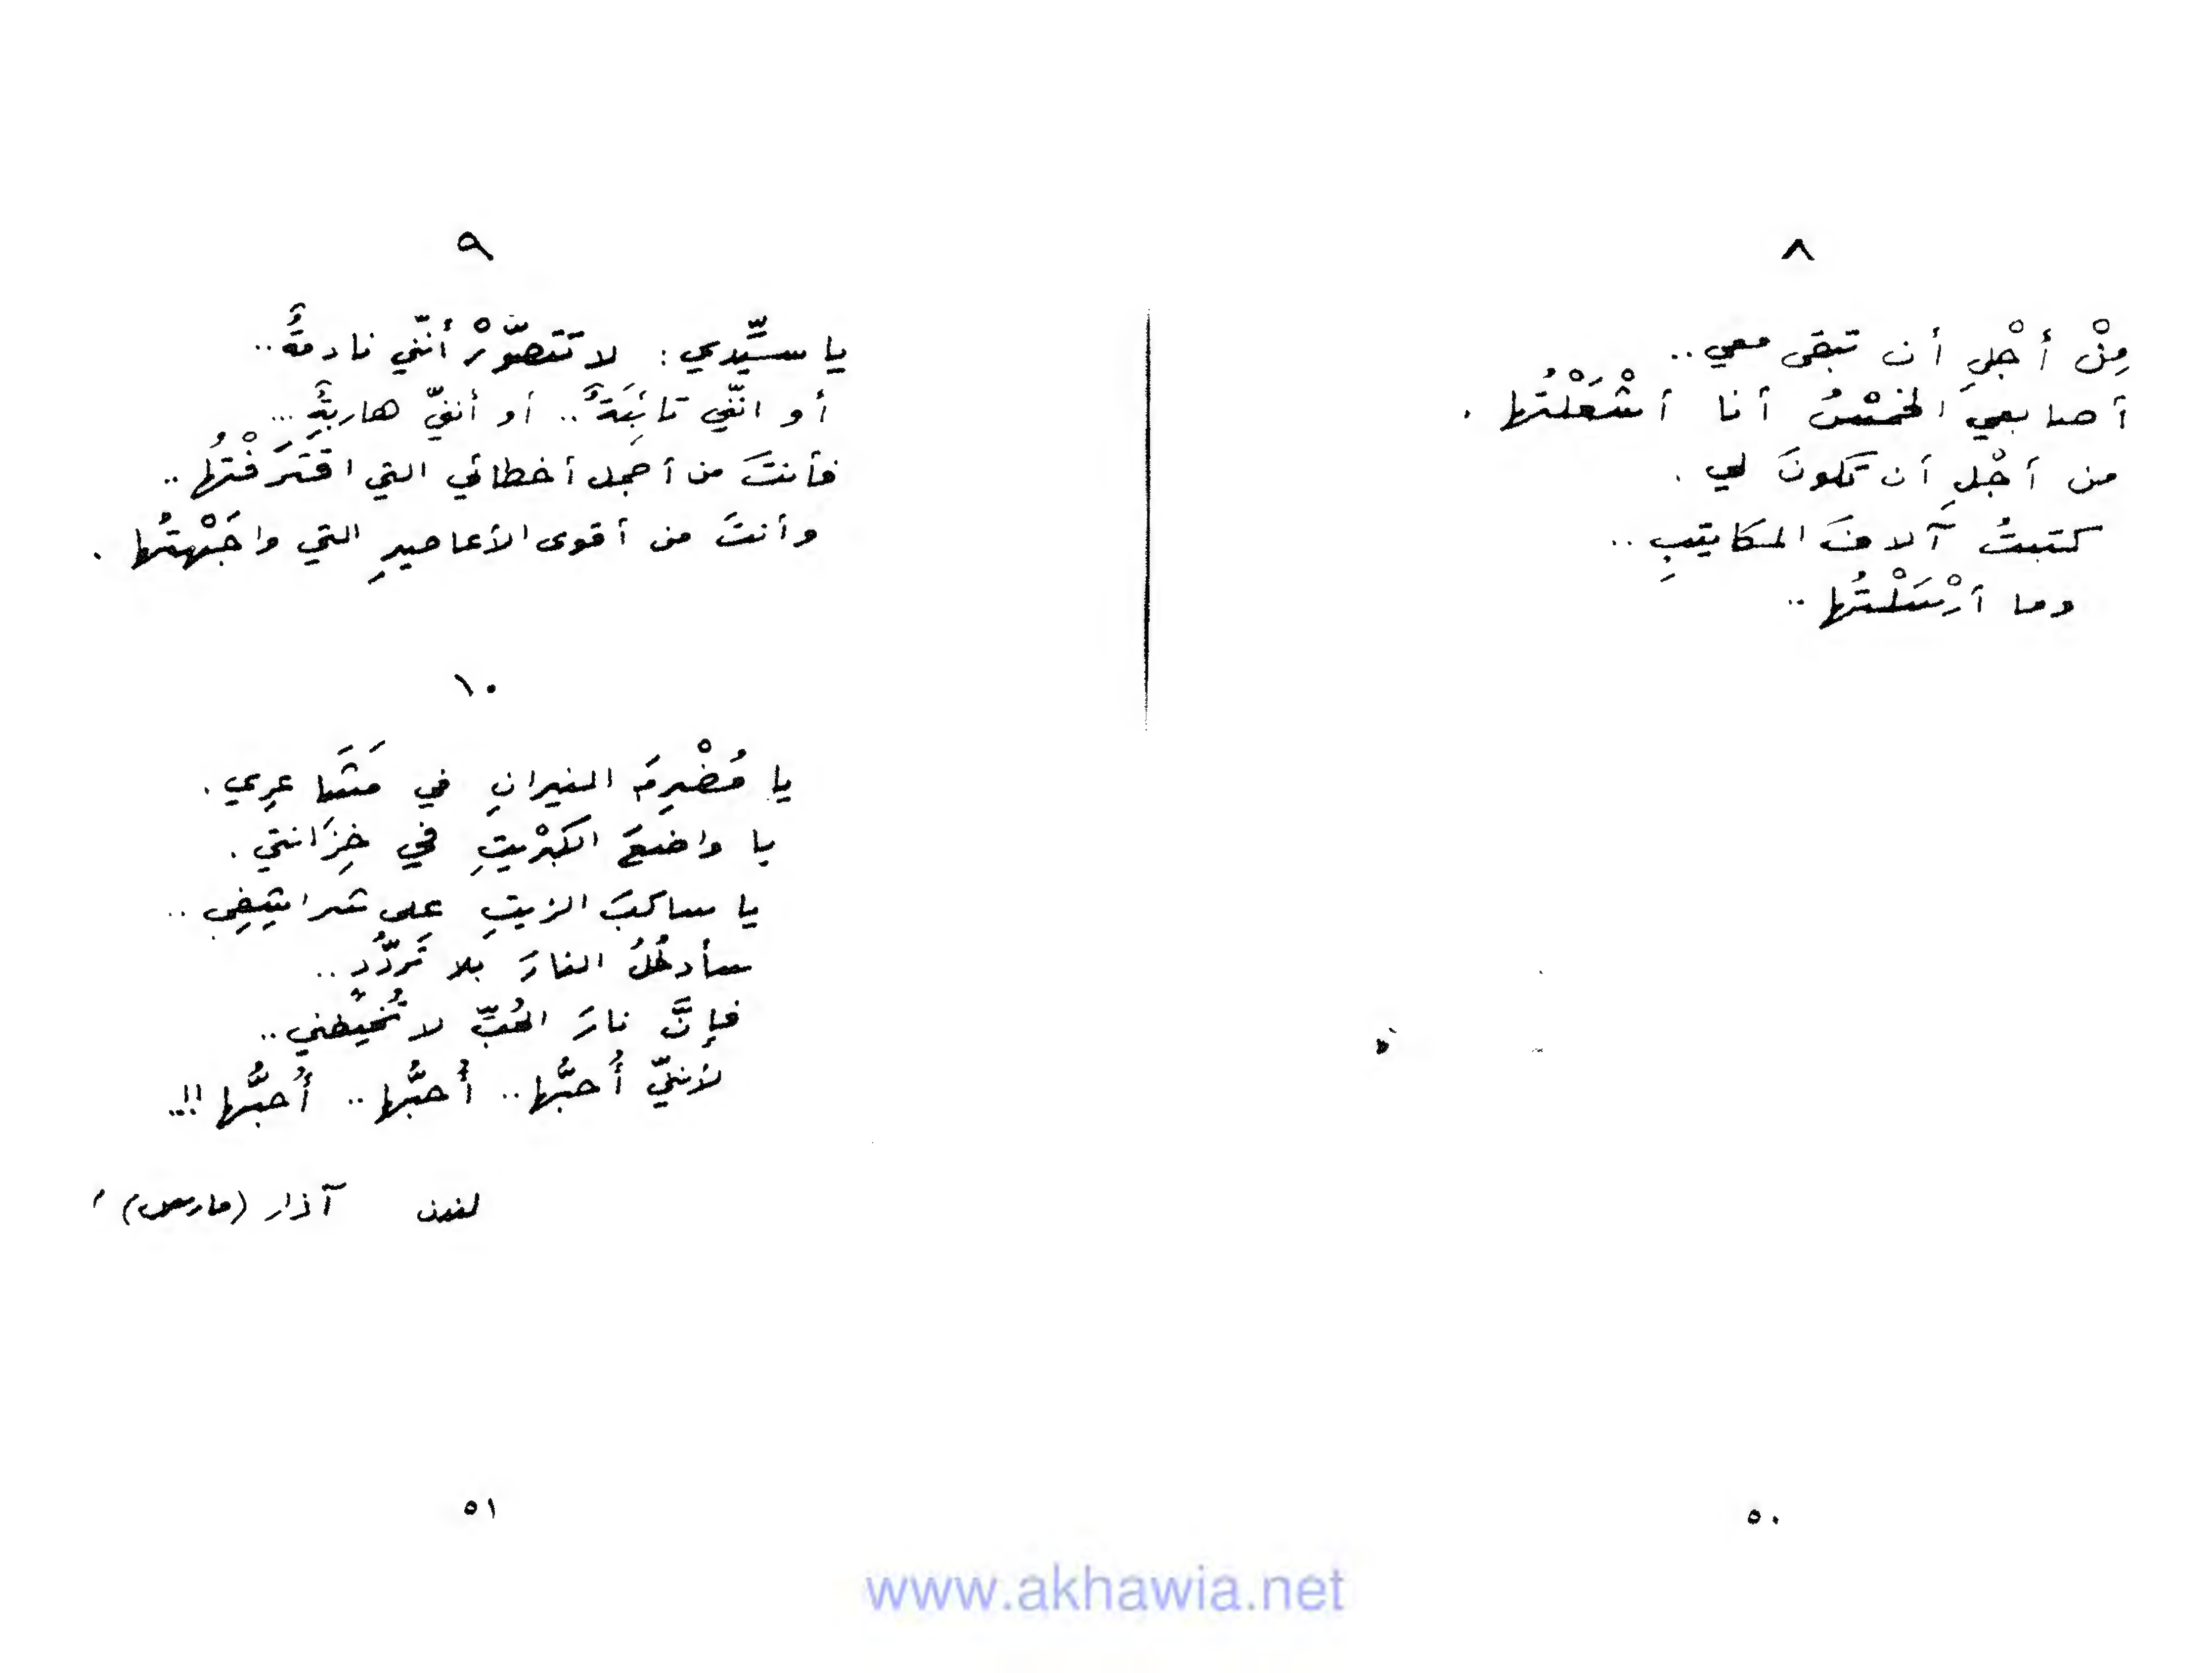 ٨
مِنْ أجْلِ أن تبقى معي..
أصابعي الخمْسُ أنا أشْعَلْتُها .
من أجْلِ أن تكونَ لي .
كتبتُ آلافَ المكاتيبِ ..
وما أرْسَلْتُها ..
٥٠
٩
يا سيِّدي : لا تَتَصوّرْ أنّني نادمةٌ ..
أو انّني تائِبَةٌ .. أو أنني هاربةٌ ...
فأنتَ من أجمل أخطائي التي اقتَرَفْتُها ..
وأنتَ من أقوى الأعاصيرِ التي واجَهْتُها .
١٠
يا مُضْرِمَ النيرانِ في مَشَاعِري .
يا واضعَ الكبْريتِ في خِزَانتي .
يا ساكبَ الزيتِ على شراشِفِي ..
سأدخُلُ النارَ بلا تَردُّدٍ ..
فإنَّ نارَ الحُبِّ لا تُخيفُني ..
لأنني أُحبُّها .. أُحبُّها .. أُحبُّها !!..
لندن آذار (مارس)
٥١
www.akhawia.net